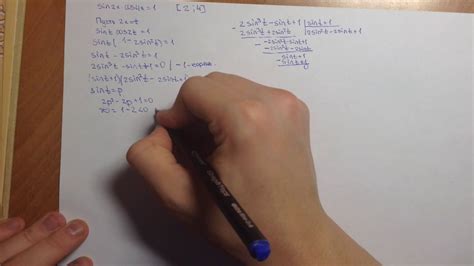 sin2x cos4x = 1 [2; 4]
Пусть 2x = t
sin t cos2t = 1
sin t (1 - 2sin²t) = 1
sin t - 2sin³t = 1
2sin³t - sin t + 1 = 0 | -1 - корень
(sin t + 1)(2sin²t - 2sin t + 1
sin t = p
2p² - 2p + 1 = 0
D = 1 - 2 < 0
2sin³t - sin t + 1 | sin t + 1
2sin³t + 2sin²t | 2sin²t - 2sin t + 1
-2sin²t - sin t + 1
-2sin²t - 2sin t
sin t + 1
sin t + 1
0